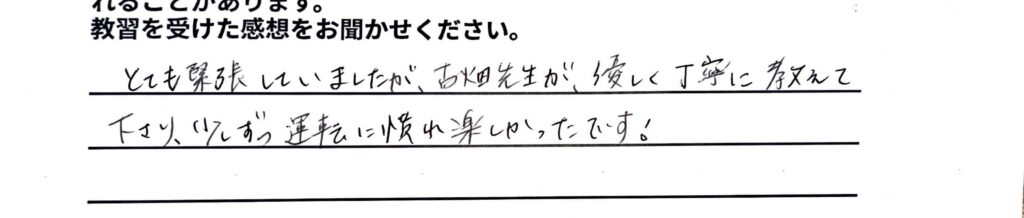 れることがあります。
教習を受けた感想をお聞かせください。
とても緊張していましたが、古畑先生が、優しく丁寧に教えて
下さり、少しずつ運転に慣れ楽しかったです!